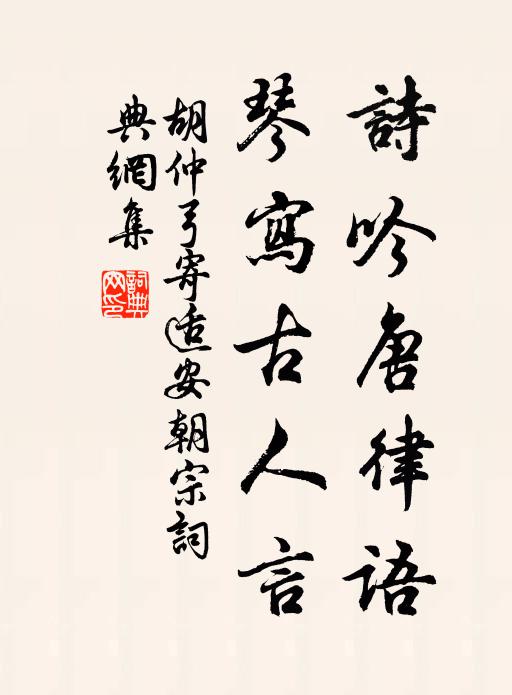 詩吟唐律語
琴寫古人言
胡仲弓寄適安朝宗詞
典網集
詞典網印